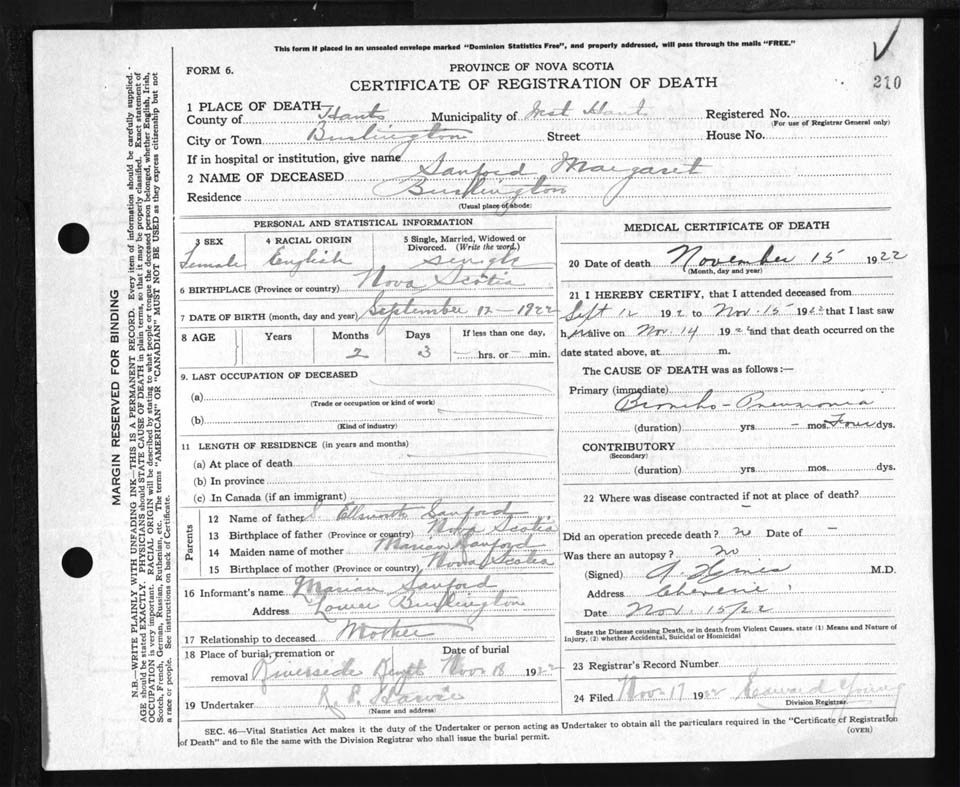 This form if placed in an unsealed envelope marked "Dominion Statistics Free", and properly addressed, will pass through the mails "FREE."
FORM 6.
PROVINCE OF NOVA SCOTIA
CERTIFICATE OF REGISTRATION OF DEATH
210
1 PLACE OF DEATH
County of Hants Municipality of West Hants Registered No.
(For use of Registrar General only)
City or Town Burlington Street House No.
If in hospital or institution, give name
2 NAME OF DECEASED Sanford Margaret
Residence Burlington
(Usual place of abode)
PERSONAL AND STATISTICAL INFORMATION
3 SEX 4 RACIAL ORIGIN 5 Single, Married, Widowed or Divorced. (Write the word.)
Female English Single
6 BIRTHPLACE (Province or country) Nova Scotia
7 DATE OF BIRTH (month, day and year) September 12 - 1922
8 AGE Years Months Days If less than one day,
2 3 — hrs. or — min.
9. LAST OCCUPATION OF DECEASED
(a)
(Trade or occupation or kind of work)
(b)
(Kind of industry)
11 LENGTH OF RESIDENCE (in years and months)
(a) At place of death
(b) In province
(c) In Canada (if an immigrant)
Parents
12 Name of father Ellsworth Sanford
13 Birthplace of father (Province or country) Nova Scotia
14 Maiden name of mother Marian Sanford
15 Birthplace of mother (Province or country) Nova Scotia
16 Informant's name Marian Sanford
Address Lower Burlington
17 Relationship to deceased Mother
18 Place of burial, cremation or removal Riverside Date of burial Nov 18 1922
19 Undertaker
(Name and address)
MEDICAL CERTIFICATE OF DEATH
20 Date of death November 15 1922
(Month, day and year)
21 I HEREBY CERTIFY, that I attended deceased from
Sept 12 192 to Nov. 15 1922 that I last saw
h er alive on Nov. 14 192 and that death occurred on
date stated above, at m.
The CAUSE OF DEATH was as follows:—
Primary (immediate)
Broncho-Pneumonia
(duration) yrs — mos. Four dys.
CONTRIBUTORY
(Secondary)
(duration) yrs. mos. dys.
22 Where was disease contracted if not at place of death?
Did an operation precede death? no Date of —
Was there an autopsy? no
(Signed) M.D.
Address Cheverie
Date Nov. 15/22
State the Disease causing Death, or in death from Violent Causes, state (1) Means and Nature of Injury, (2) whether Accidental, Suicidal or Homicidal
23 Registrar's Record Number
24 Filed Nov 17 1922 Edward Young
Division Registrar.
SEC. 46—Vital Statistics Act makes it the duty of the Undertaker or person acting as Undertaker to obtain all the particulars required in the "Certificate of Registration
of Death" and to file the same with the Division Registrar who shall issue the burial permit.
(OVER)
MARGIN RESERVED FOR BINDING
N.B.—WRITE PLAINLY WITH UNFADING INK—THIS IS A PERMANENT RECORD. Every item of information should be carefully supplied.
AGE should be stated EXACTLY. PHYSICIANS should STATE CAUSE OF DEATH in plain terms, so that it may be properly classified. Exact statement of
OCCUPATION is very important. RACIAL ORIGIN will be described by stating to what people or tongue the deceased person belonged, whether English, Irish,
Scotch, French, German, Russian, Ruthenian, etc. The terms "AMERICAN" OR "CANADIAN" MUST NOT BE USED as they express citizenship but not
a race or people. See instructions on back of Certificate.